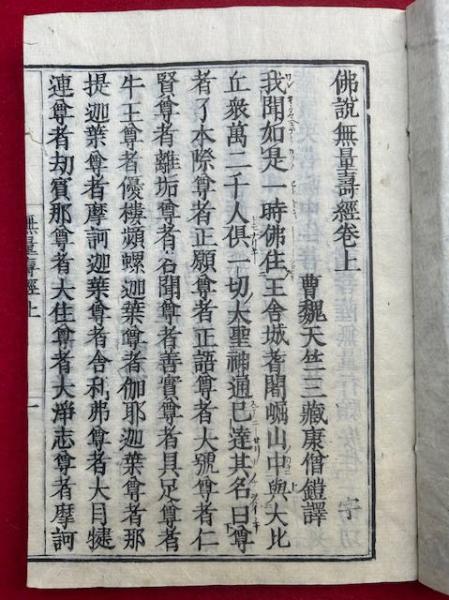 佛說無量壽經卷上
曹魏天竺三藏康僧鎧譯
我聞如是一時佛住王舍城耆闍崛山中與大比
丘衆萬二千人俱一切大聖神通已達其名曰尊
者了本際尊者正願尊者正語尊者大號尊者仁
賢尊者離垢尊者名聞尊者善實尊者具足尊者
牛王尊者優樓頻螺迦葉尊者伽耶迦葉尊者那
提迦葉尊者摩訶迦葉尊者舍利弗尊者大目犍
連尊者劫賓那尊者大住尊者大淨志尊者摩訶
無量壽經上 一